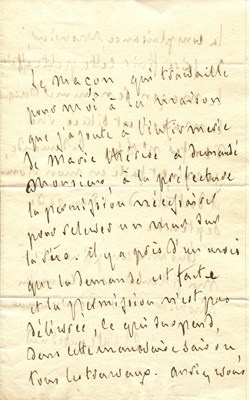 Le maçon qui travaille
pour moi à la maison
que j'ajoute à l'infirmerie
de Marie Thérèse a demandé
Monsieur, à la préfecture
la permission nécessaire
pour relever un mur sur
la rue. il y a près d'un mois
que la demande est faite
et la permission n'est pas
délivrée, ce qui suspend,
dans cette mauvaise saison,
tous les travaux. auriez vous